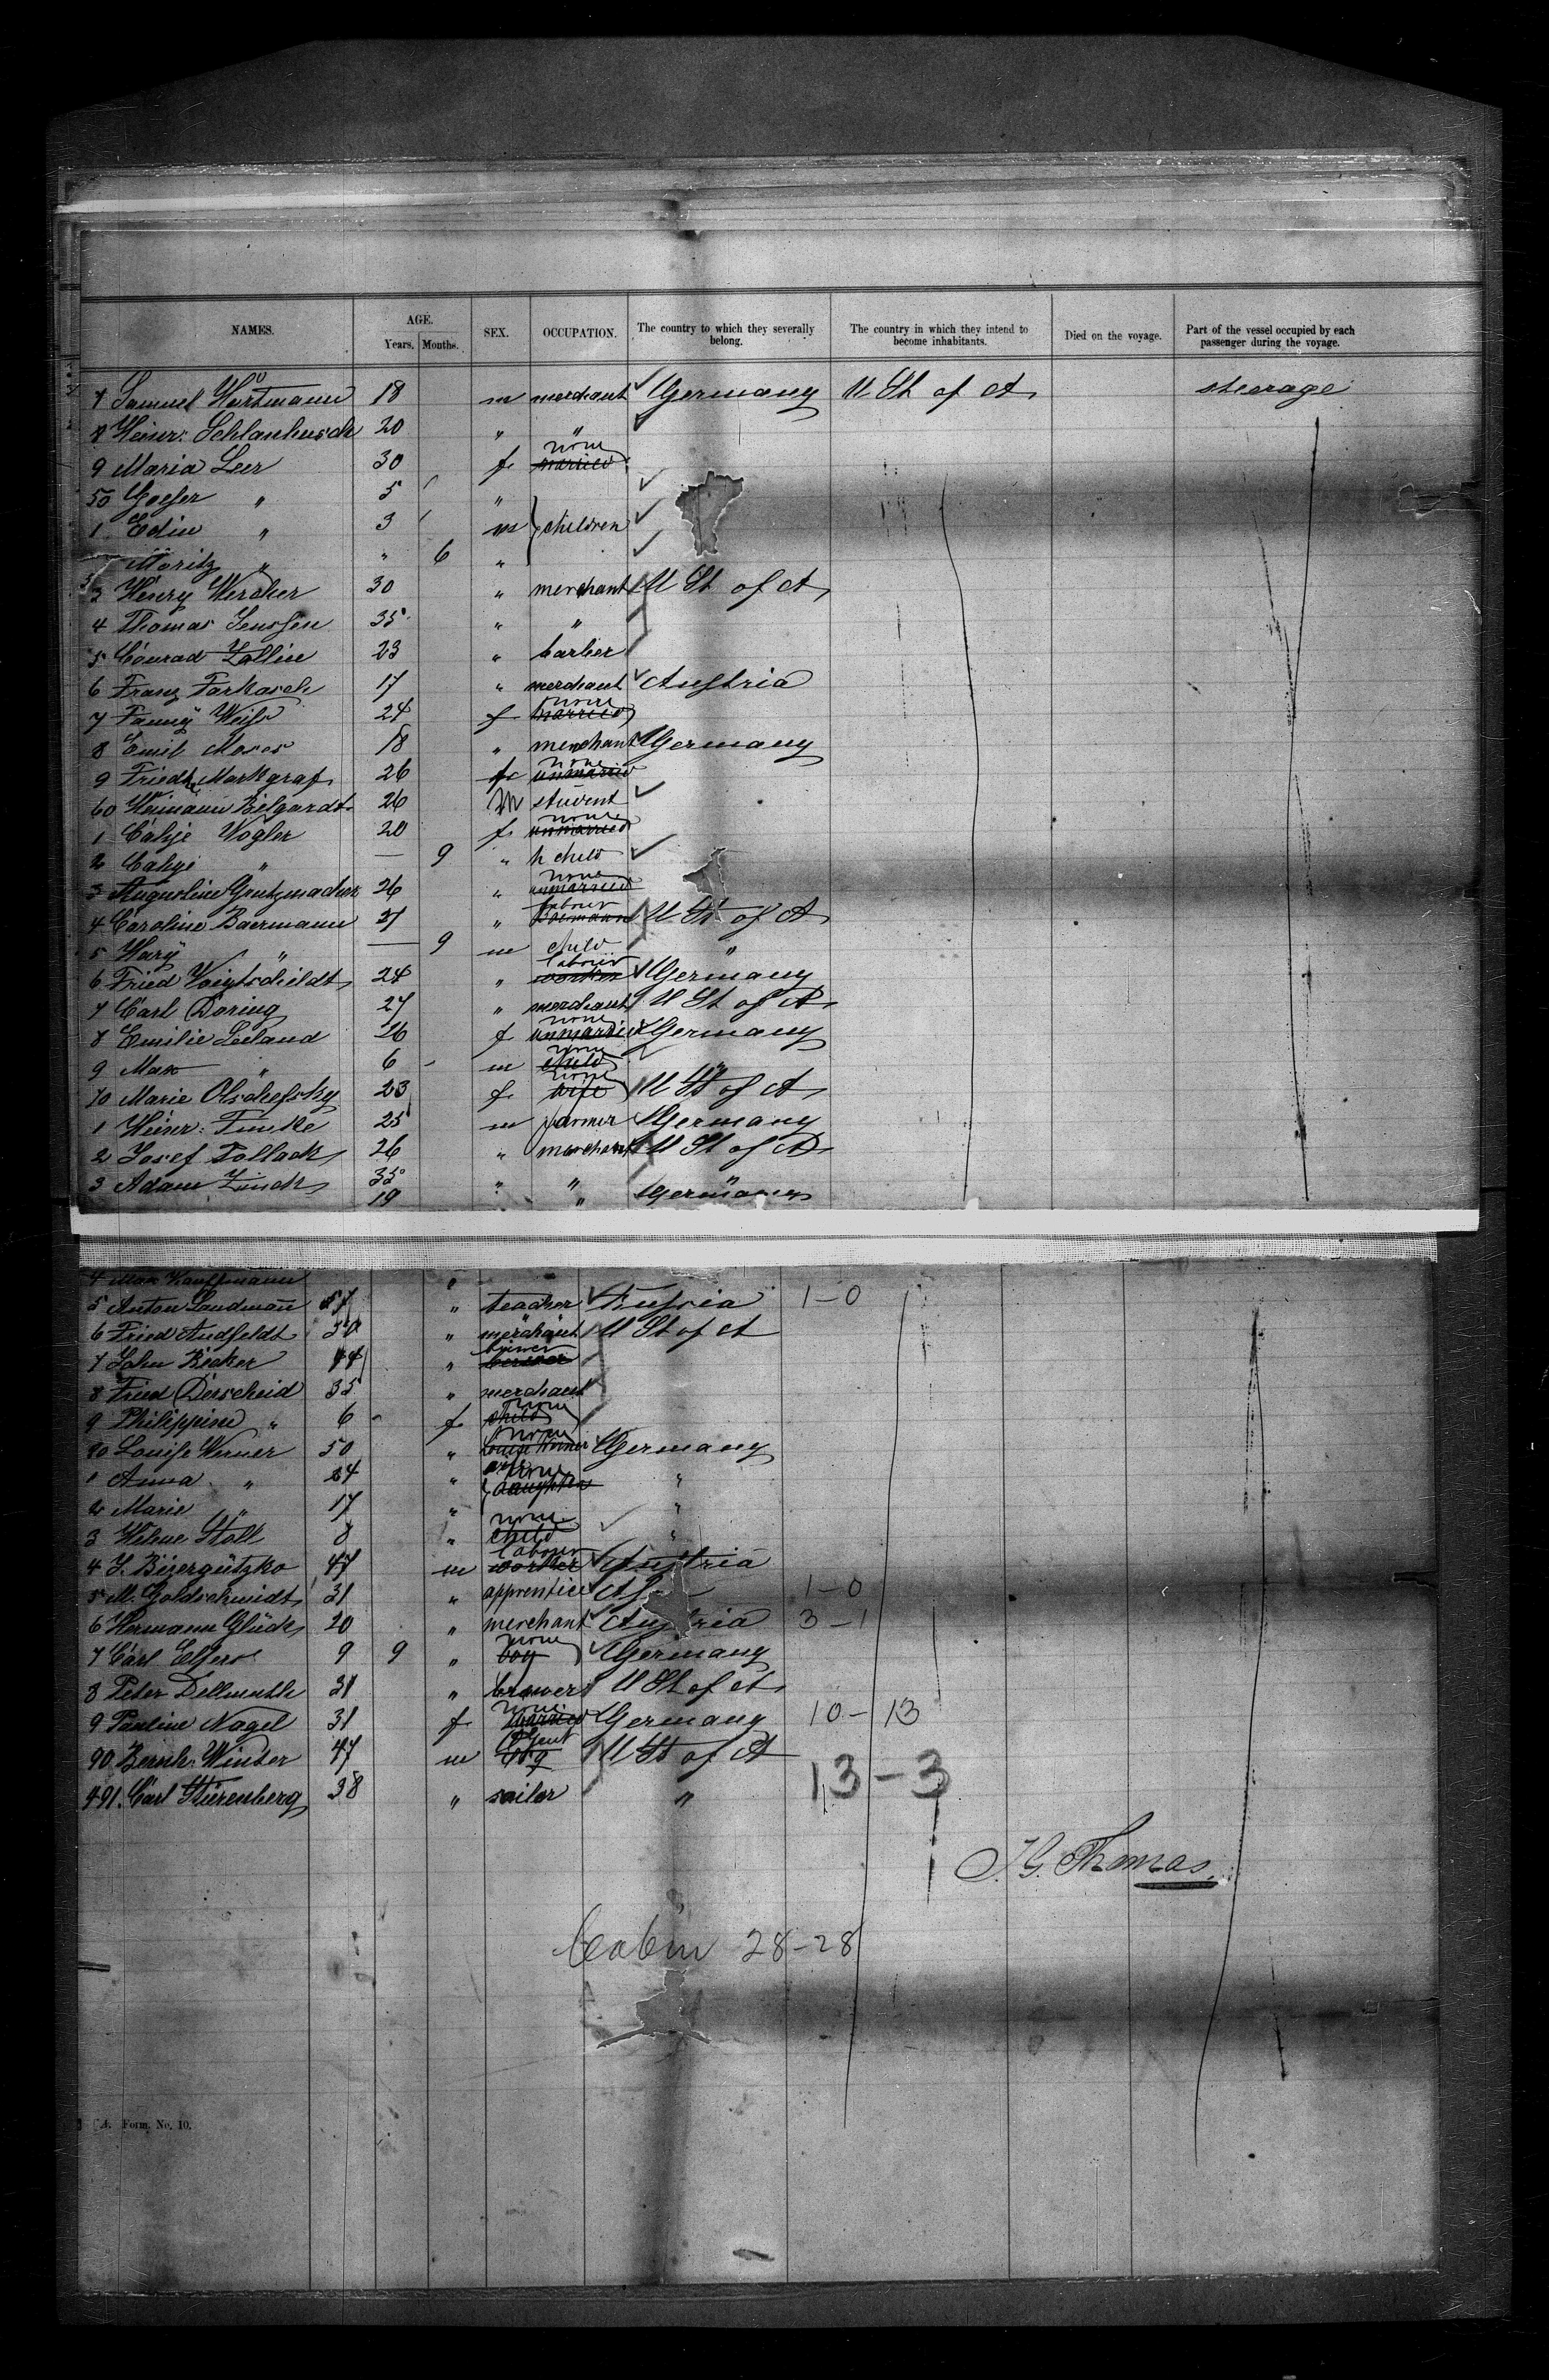 NAMES. AGE. SEX. OCCUPATION. The country to which they severally belong. The country in which they intend to become inhabitants. Died on the voyage. Part of the vessel occupied by each passenger during the voyage.
Years. Months.
7 Samuel Wortmann 18 m merchant Germany U St of A steerage
8 Heinr: Schlanbusch 20 " "
9 Maria Leer 30 f married none
50 " 5 "
1 Edin " 3 m children
Moritz " " 6 "
3 Henry Wercker 30 " merchant U St of A
4 Thomas Jenssen 35 " "
5 Conrad Zollin 23 " barbier
6 Franz Farkasch 17 " merchant Austria
7 Fanny Weiss 24 f married none
8 Emil Moses 18 " merchant Germany
9 Friedke Markgraf 26 f unmarried none
60 Hermann Belgardt 26 m student
1 Cahje Vogler 20 f unmarried none
2 Cahje " — 9 " child
3 Augustine Grutzmacher 26 " unmarried none
4 Caroline Baermann 37 " labour U St of A
5 Hary " — 9 m child "
6 Fried Voigtschildt 24 " worker labour Germany
7 Carl Döring 27 " merchant U St of A
8 Emilie Leeland 26 f unmarried none Germany
9 Max " 6 m child none "
70 Marie Olschefsky 23 f wife none U St of A
1 Heinr: Funke 25 m farmer Germany
2 Josef Pollack 26 " merchant U St of A
3 Adam Zinck 35 " " "
19 " Germany
4 Max Kauffmann "
5 Anton Landmann 57 " teacher Russia 1-0
6 Fried Audfeldt 50 " merchant U St of A
7 John Becker 44 " brewer
8 Fried Derscheid 35 " merchant
9 Philippine " 6 f child none
80 Louise Werner 50 " none Germany
1 Anna " 24 " daughter none "
2 Marie " 17 " "
3 Helene Stoll 8 " child none "
4 J. Bizergützko 47 m worker labour Austria
5 M. Goldschmidt 31 " apprentice 1-0
6 Hermann Glück 20 " merchant Austria 3-1
7 Carl Elfers 9 9 " boy none Germany
8 Peter Dellmuth 31 " brewer U St of A
9 Pauline Nagel 31 f married none Germany 10-13
90 Bernh. Winter 47 m agent U St of A 13-3
491. Carl Stürenberg 38 " sailor "
J. G. Thomas.
Cabin 28-28
A. Form. No. 10.